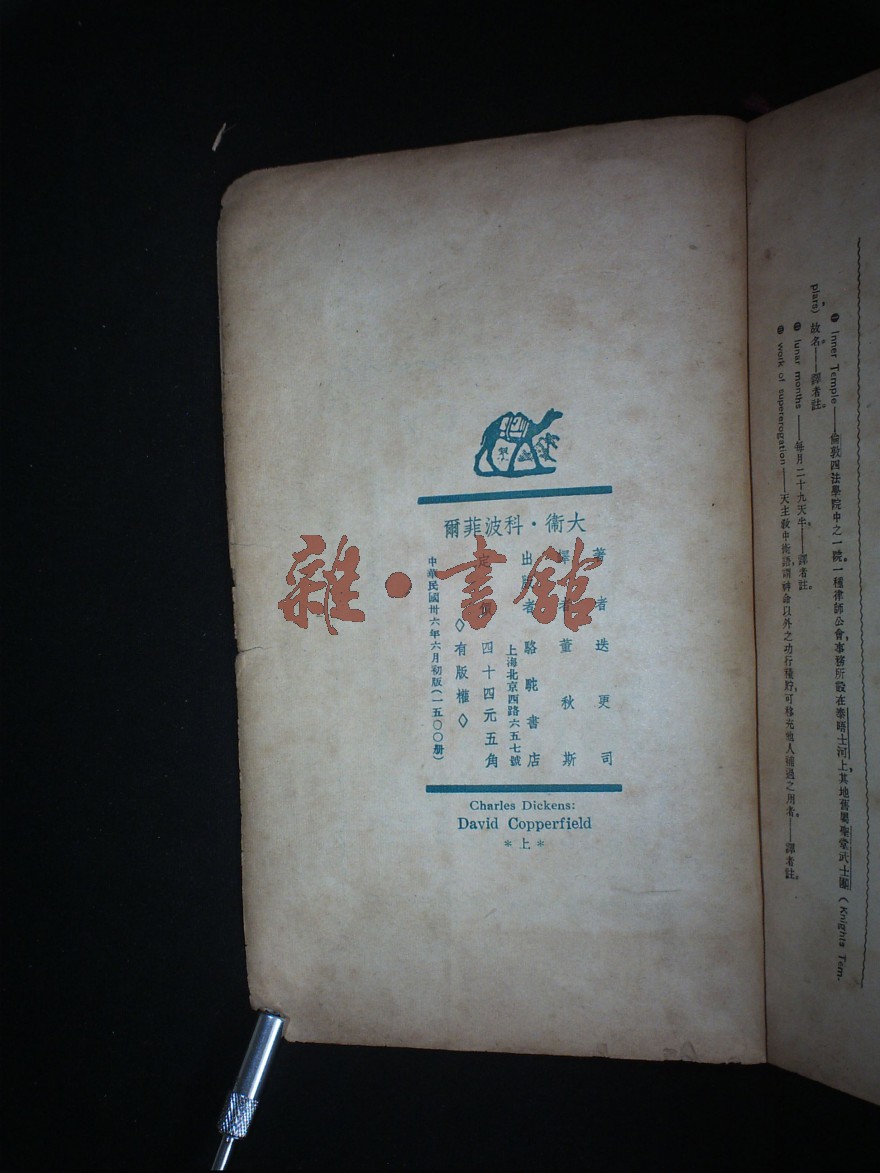 爾菲波科・衞大
著者迭更司
譯者董秋斯
出版者駱駝書店
上海北京西路六五七號
定價四十四元五角
◇有版權◇
中華民國卅六年六月初版(一五〇〇册)
Charles Dickens:
David Copperfield
*上*
雜・書館
❶ Inner Temple——倫敦四法學院中之一院。一種律師公會，事務所設在泰晤士河上，其地舊屬聖堂武士團 (Knights Tem-
plars) 故名。——譯者註。
lunar months——每月二十九天半。——譯者註。
work of supererogation——天主教中術語，謂神命以外之功行積貯，可移充他人補過之用者。——譯者註。